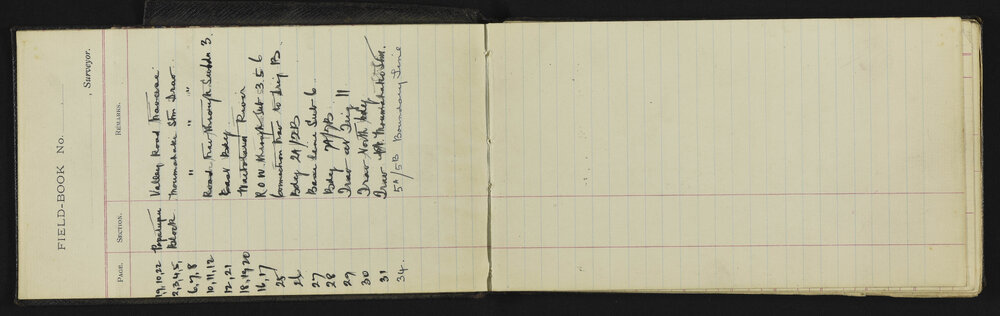 FIELD-BOOK No.
, Surveyor.
PAGE. SECTION. REMARKS.
19,10,22 Papatupu Valley Road Traverse
2,3,4,5, Block Moumahaki Stm Trav.
6,7,8 " " "
10,11,12 Road Trav through Subdn 3.
12,21 East Bdy
18,19,20 Waitotara River
16,17 R.O.W. through Sub 3.5 6
25 Connection Trav to Trig B.
26 Bdy 2A/2B
27 Base Line Sub 6
28 Bdy 7A/7B
29 Trav at Trig 11
30 Trav North Bdy
31 Trav Moumahaki Stm.
34. 5A/5B Boundary Line